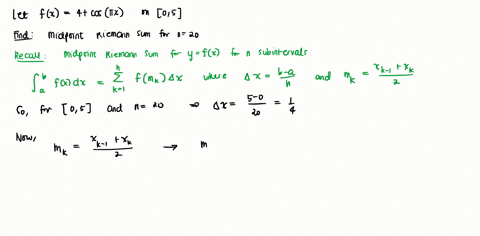 Let f(x) = 4 + cos(πx) on [0,5]
Find: Midpoint Riemann Sum for n=20
Recall: Midpoint Riemann Sum for y=f(x) for n subintervals
∫_a^b f(x)dx = ∑_{k=1}^n f(m_k) Δx where Δx = (b-a)/n and m_k = (x_{k-1} + x_k)/2
So, for [0,5] and n=20 ⇒ Δx = (5-0)/20 = 1/4
Now,
m_k = (x_{k-1} + x_k)/2 → m